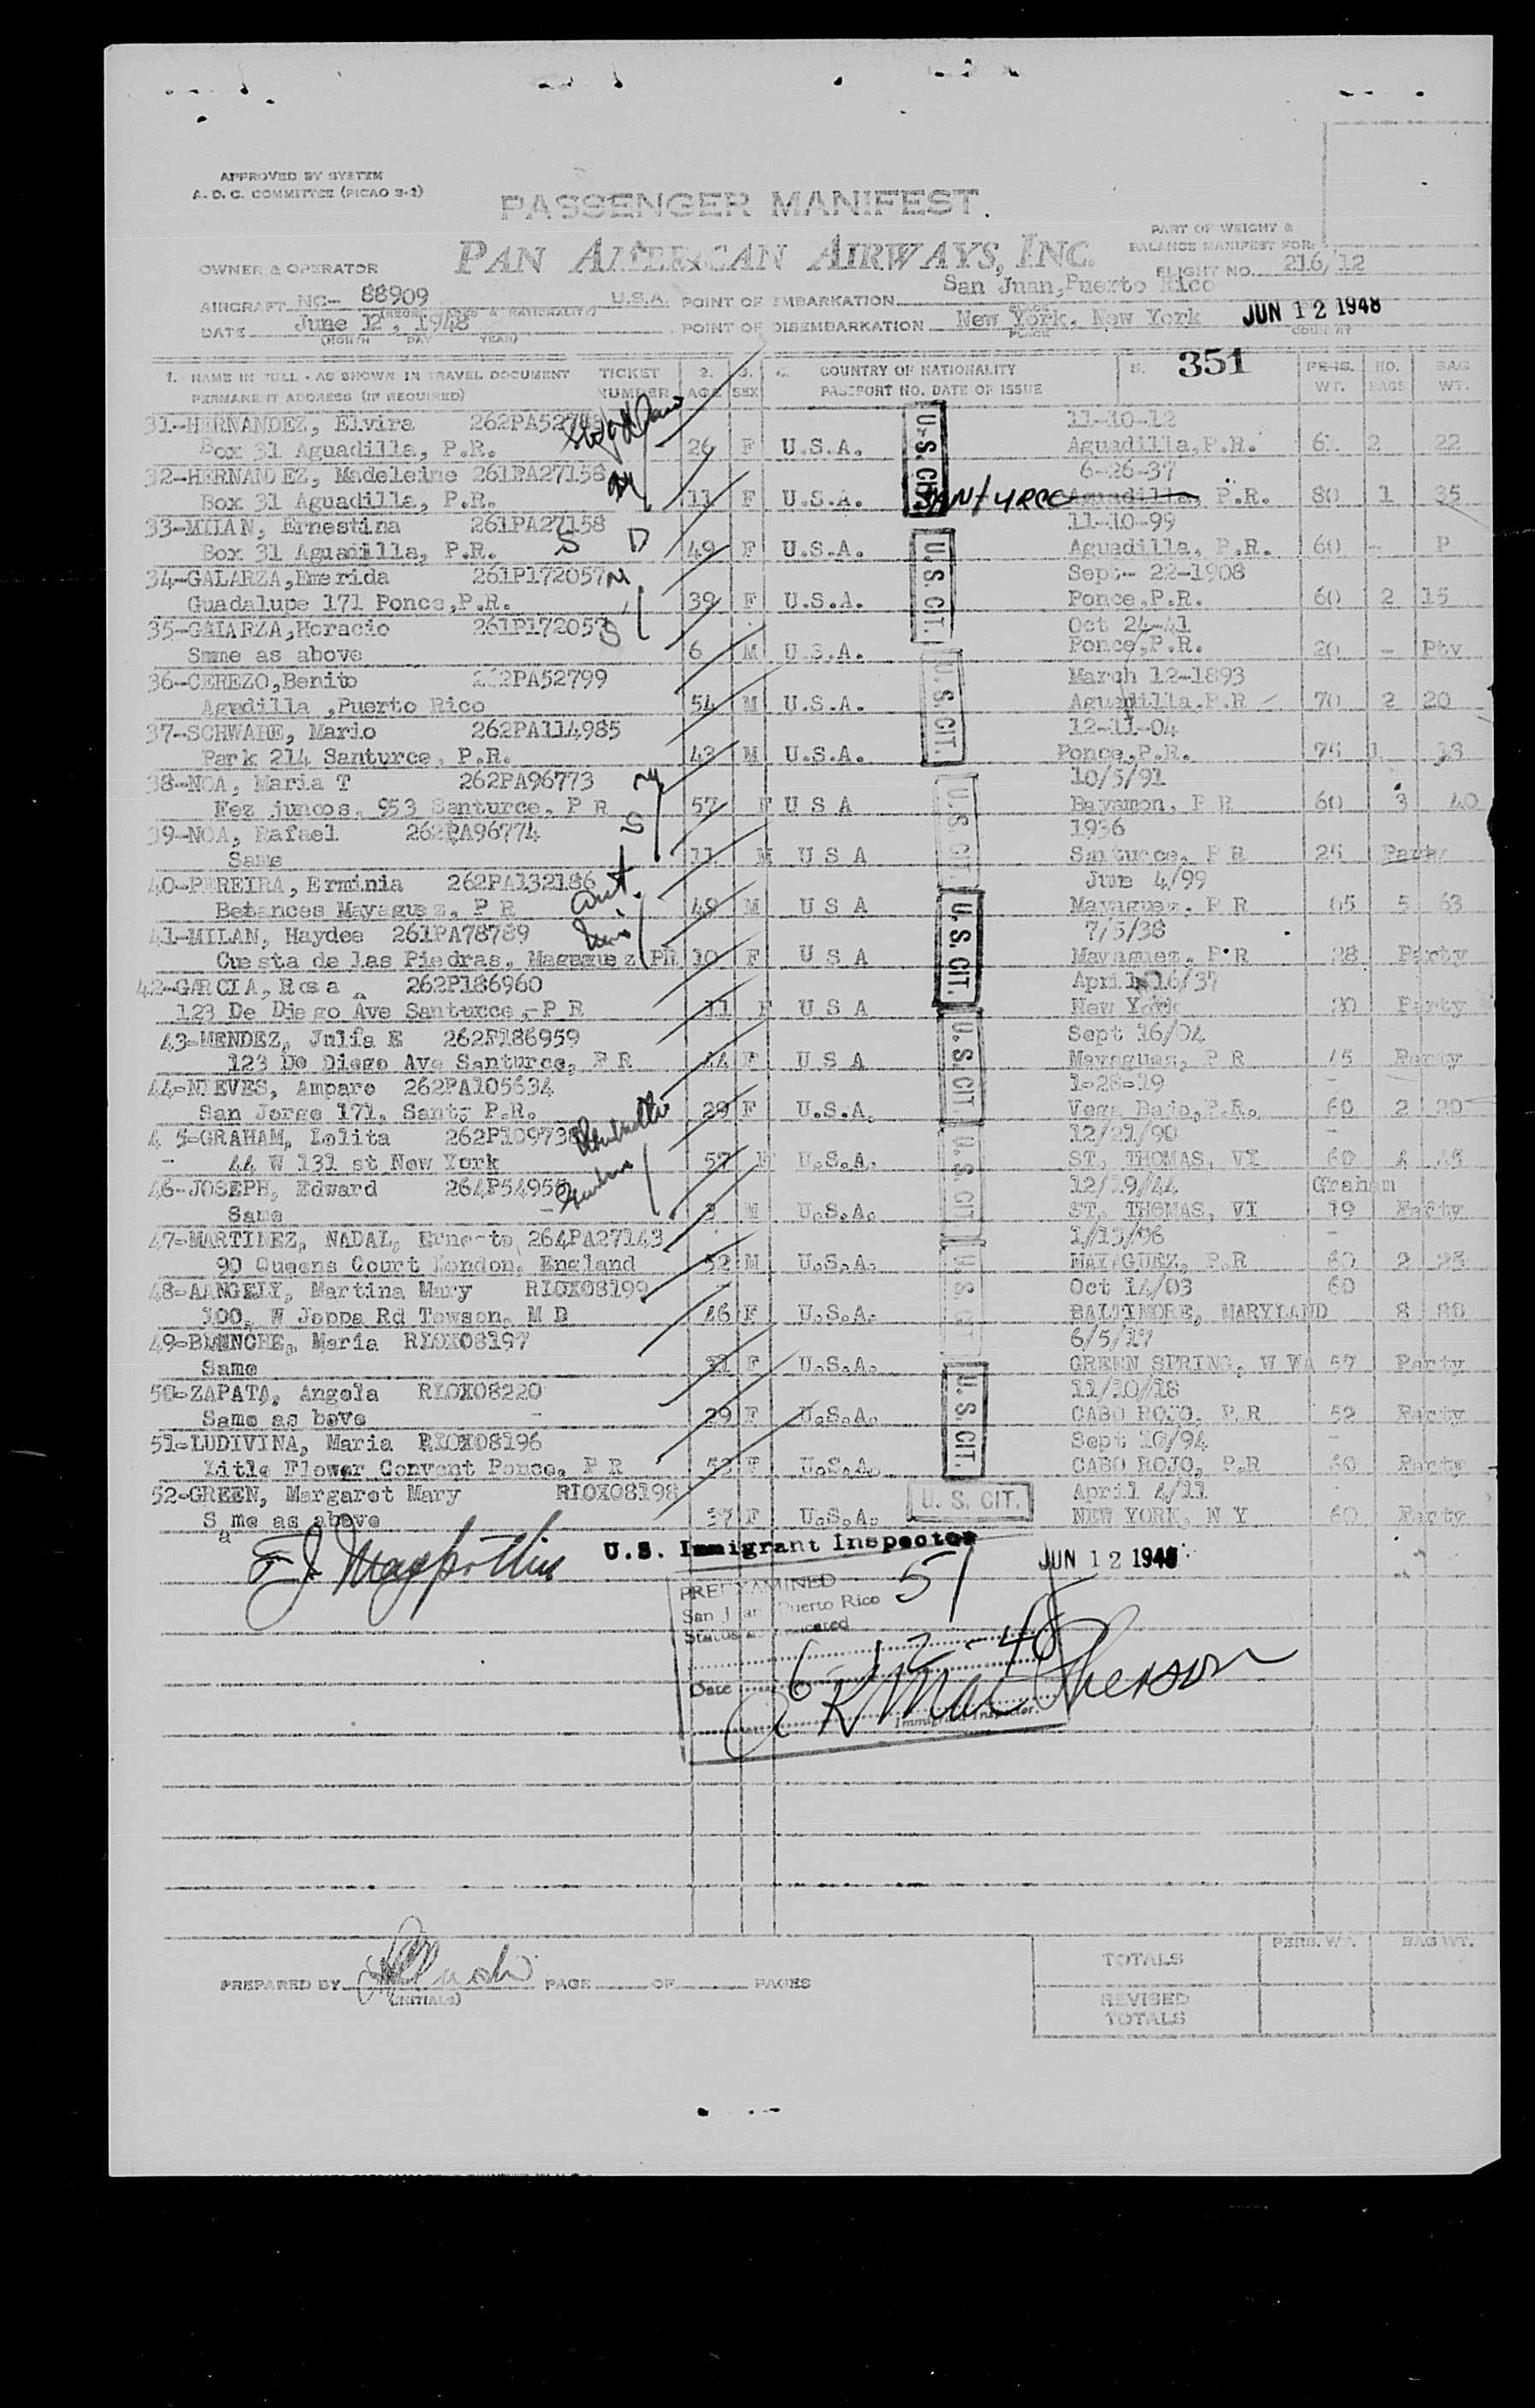 APPROVED BY SYSTEM
A. D. C. COMMITTEE (PICAO 3-2)
PASSENGER MANIFEST.
PAN AMERICAN AIRWAYS, INC.
PART OF WEIGHT &
BALANCE MANIFEST FOR:
OWNER & OPERATOR
FLIGHT NO. 216/12
AIRCRAFT NC- 88909 U.S.A. POINT OF EMBARKATION San Juan, Puerto Rico
DATE June 12, 1948 POINT OF DISEMBARKATION New York, New York JUN 12 1948
(MONTH DAY YEAR) PLACE
1. NAME IN FULL - AS SHOWN IN TRAVEL DOCUMENT TICKET 2. 3. 4. COUNTRY OF NATIONALITY 5. 351 PERS. NO. BAG
PERMANENT ADDRESS (IF REQUIRED) NUMBER AGE SEX PASSPORT NO. DATE OF ISSUE WT. BAGS WT.
31-HERNANDEZ, Elvira 11-10-12
Box 31 Aguadilla, P.R. 26 F U.S.A. Aguadilla, P.R. 2 22
32-HERNANDEZ, Madeleine 261PA27158 6-26-37
Box 31 Aguadilla, P.R. 11 F U.S.A. SANTURCE Aguadilla, P.R. 80 1 35
33-MILAN, Ernestina 261PA27158 11-10-99
Box 31 Aguadilla, P.R. S D 49 F U.S.A. Aguadilla, P.R. 60 - P
34-GALARZA,Emerida 261P172057 Sept- 22-1908
Guadalupe 171 Ponce,P.R. 39 F U.S.A. Ponce,P.R. 60 2 15
35-GALARZA,Horacio 261P172057 S Oct 24-41
Same as above 6 M U.S.A. Ponce,P.R. 20 - Pty
36-CEREZO,Benito 262PA52799 March 12-1893
Agadilla ,Puerto Rico 54 M U.S.A. Aguadilla,P.R 70 2 20
37-SCHWABE, Mario 262PA114985 12-11-04
Park 214 Santurce, P.R. 43 M U.S.A. Ponce,P.R. 1 18
38-NOA, Maria T 262PA96773 10/5/91
juncos, 953 Santurce, P R 57 F U S A Bayamon, P R 60 3 40
39-NOA, Rafael 262PA96774 1936
Same 11 M U S A Santurce, P R 25 Party
40-PEREIRA, Erminia 262PA132186 June 4/99
Betances Mayaguez, P R 49 M U S A Mayaguez, P R 5 63
41-MILAN, Haydee 261PA78789 7/5/38
Cuesta de las Piedras, Mayaguez PR 10 F U S A Mayaguez, P R Party
42-GARCIA, Rosa 262P186960 April 16/37
123 De Diego Ave Santurce,-P R 11 F U S A New York Party
43-MENDEZ, Julia E 262P186959 Sept 16/04
123 De Diego Ave Santurce, P R 44 F U S A Mayaguez, P R Party
44-NIEVES, Amparo 262PA105634 1-28-19
San Jorge 171, Sant; P.R. 29 F U.S.A. Vega Baja,P.R. 60 2 20
45-GRAHAM, Lolita 12/21/90
44 W 131 st New York 57 F U.S.A. ST. THOMAS, VI 60 4
46-JOSEPH, Edward 264P54955 12/19/44 Graham
Same 3 M U.S.A. ST. THOMAS, VI 19 Party
47-MARTINEZ, NADAL, Ernesto 264PA27143 1/13/96
90 Queens Court London, England 52 M U.S.A. MAYAGUEZ, P.R 60 2 25
48-AANGELY, Martina Mary RIOX08199 Oct 14/03 60
100, W Joppa Rd Towson, M D 46 F U.S.A. BALTIMORE, MARYLAND 8 88
49-BLENCHE, Maria RIOX08197 6/5/17
Same 31 F U.S.A. GREEN SPRING, W VA 57 Party
50-ZAPATA, Angela RIOX08220 11/10/18
Same as bove 29 F U.S.A. CABO ROJO, P.R 52 Party
51-LUDIVINA, Maria RIOX08196 Sept 10/94
Litle Flower Convent Ponce, P R 53 F U.S.A. CABO ROJO, P.R 60 Party
52-GREEN, Margaret Mary RIOX08198 April 4/11
Same as above 37 F U.S.A. NEW YORK, N Y 60 Party
U. S. CIT.
U. S. CIT.
U. S. CIT.
U. S. CIT.
U. S. CIT.
U. S. CIT.
U. S. CIT.
U. S. CIT.
U. S. CIT.
U. S. CIT.
U.S. Immigrant Inspector
JUN 12 1948
PREEXAMINED 51
San Juan, Puerto Rico
Status as indicated
Date 6-12-48
A K MacPherson
Immigrant Inspector.
PREPARED BY PAGE OF PAGES
(INITIALS)
PERS. WT. BAG WT.
TOTALS
REVISED
TOTALS